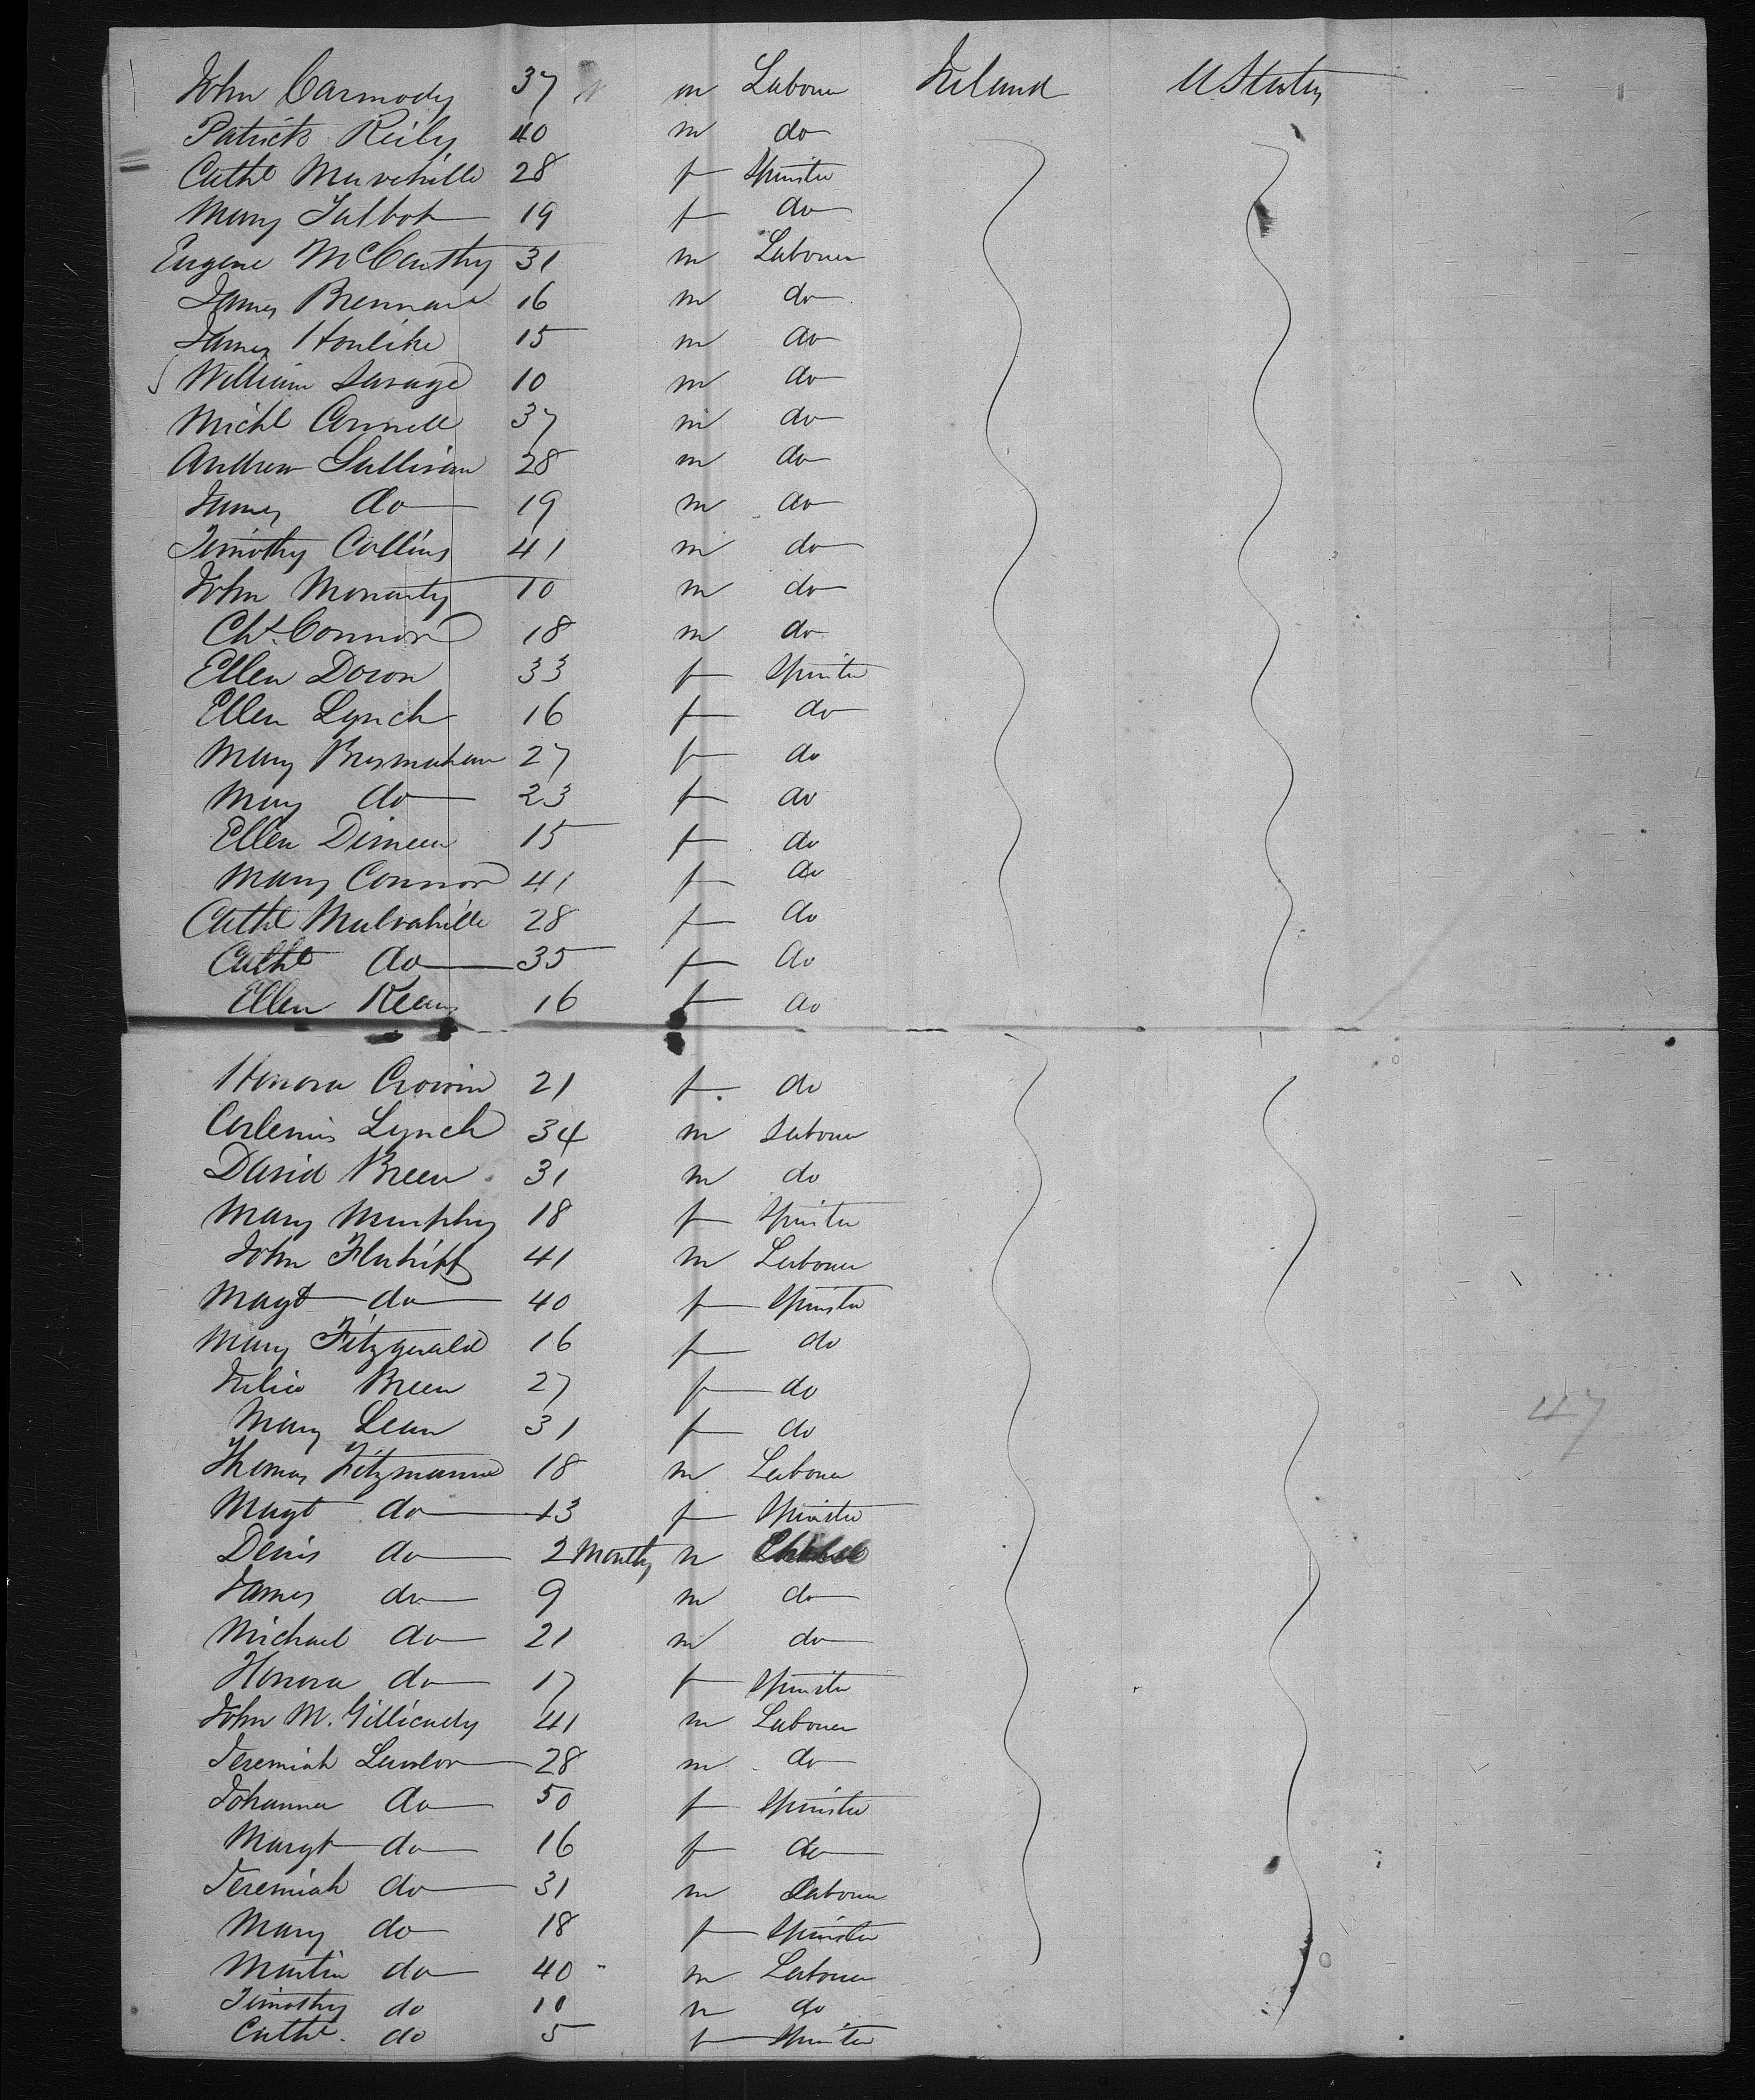 John Carmody 37 m Labourer Ireland U States
Patrick Reily 40 m do
Cathe Muvehille 28 f Spinster
Mary Talbot 19 f do
Eugene McCarthy 31 m Labourer
James Brennan 16 m do
James Houlihe 15 m do
William Savage 10 m do
Michl Connell 37 m do
Andrew Sullivan 28 m do
James do 19 m do
Timothy Collins 41 m do
John Moriarty 10 m do
Chs. Connor 18 m do
Ellen Doron 33 f Spinster
Ellen Lynch 16 f do
Mary Bresnahan 27 f do
Mary do 23 f do
Ellen Dineen 15 f do
Mary Connor 41 f do
Cathe Mulvahille 28 f do
Cathe do 35 f do
Ellen Keany 16 f do
Honora Crowin 21 f do
Corlenius Lynch 34 m Labourer
David Breen 31 m do
Mary Murphy 18 f Spinster
John Flahiff 41 m Labourer
Magt do 40 f Spinster
Mary Fitzgerald 16 f do
Julia Breen 27 f do
Mary Lean 31 f do
Thomas Fitzmaurice 18 m Labourer
Magt do 13 f Spinster
Denis do 2 Months m
James do 9 m do
Michael do 21 m do
Honora do 17 f Spinster
John M. Gillicudy 41 m Labourer
Jeremiah Lawlor 28 m do
Johanna do 50 f Spinster
Margt do 16 f do
Jeremiah do 31 m Labourer
Mary do 18 f Spinster
Martin do 40 m Labourer
Timothy do 10 m do
Cathe. do 5 f Spinster
47